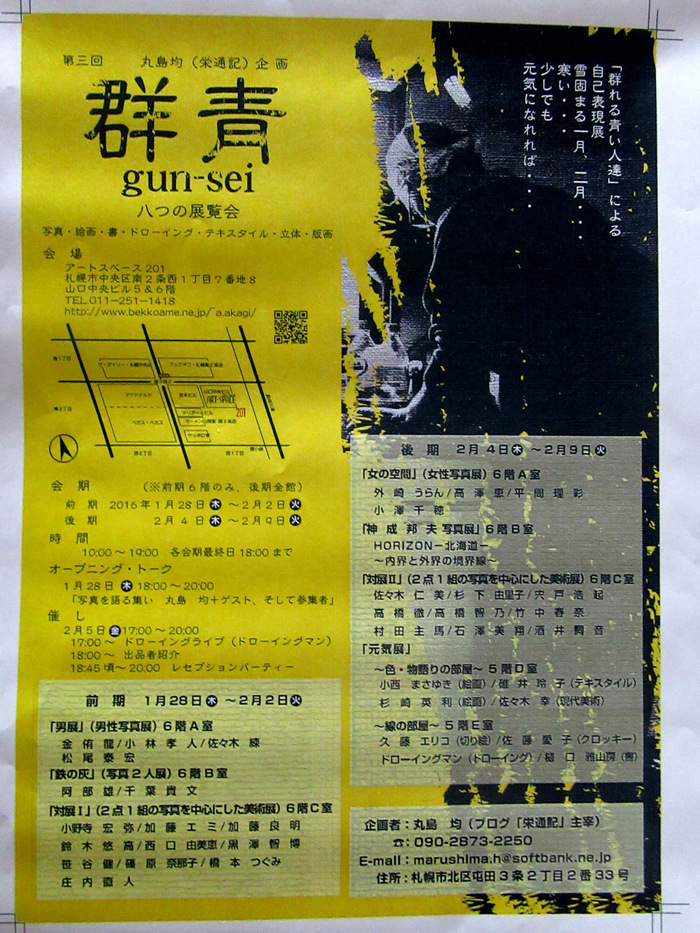 第三回 丸島均（栄通記）企画
群青
gun-sei
八つの展覧会
写真・絵画・書・ドローイング・テキスタイル・立体・版画
「群れる青い人達」による
自己表現展
雪固まる一月、二月・・・・
寒い・・・
少しでも
元気になれれば・・・・
会 場
アートスペース201
札幌市中央区南2条西1丁目7番地8
山口中央ビル5＆6階
TEL.011-251-1418
http://www.bekkoame.ne.jp/~a.akagi/
南1丁目
マクドナルド
山口中央ビル
ART-SPACE
201
ベガス・ベガス
南2丁目
西2丁目
西1丁目
会 期 （※前期6階のみ、後期全館）
前 期 2016年1月28日木～2月2日火
後 期 2月 4日木～2月9日火
時 間
10:00～19:00 各会期最終日18:00まで
オープニング・トーク
1月28日 木 18:00～20:00
「写真を語る集い 丸島 均＋ゲスト、そして参集者」
催 し
2月5日金17:00～20:00
17:00～ ドローイングライブ（ドローイングマン）
18:00～ 出品者紹介
18:45頃～20:00 レセプションパーティー
前 期 1月28日木 ～2月2日火
「男展」（男性写真展）6階A室
金 侑 龍/小 林 孝 人/佐々木 練
松 尾 泰 宏
「鉄の灰」（写真2人展）6階B室
阿 部 雄/千 葉 貴 文
「対展Ⅰ」（2点1組の写真を中心にした美術展）6階C室
小野寺 宏 弥/加 藤 エ ミ/加 藤 良 明
鈴 木 悠 高/西 口 由美恵/黒 澤 智 博
笹 谷 健/篠 原 奈那子/橋 本 つぐみ
庄 内 直 人
後 期 2月 4日木 ～2月9日火
「女の空間」（女性写真展）6階A室
外 崎 うらん/高 澤 恵/平 間 理 彩
小 澤 千 穂
「神 成 邦 夫 写真展」6階B室
HORIZON－北海道－
～内界と外界の境界線～
「対展Ⅱ」（2点1組の写真を中心にした美術展）6階C室
佐々木 仁 美/杉 下 由里子/宍 戸 浩 起
高 橋 徹/高 橋 智 乃/竹 中 春 奈
村 田 主 馬/石 澤 美 翔/酒 井 詞 音
「元気展」
～色・物語りの部屋～ 5階D室
小西 まさゆき（絵画）/碓 井 玲 子（テキスタイル）
杉 崎 英 利（絵画）/佐々木 幸（現代美術）
～線の部屋～ 5階E室
久 藤 エリコ（切り絵）/佐 藤 愛 子（クロッキー）
ドローイングマン（ドローイング）/樋 口 雅山房（書）
企画者：丸島 均（ブログ「栄通記」主宰）
☎：090-2873-2250
E-mail：marushima.h@softbank.ne.jp
住所：札幌市北区屯田3条2丁目2番33号